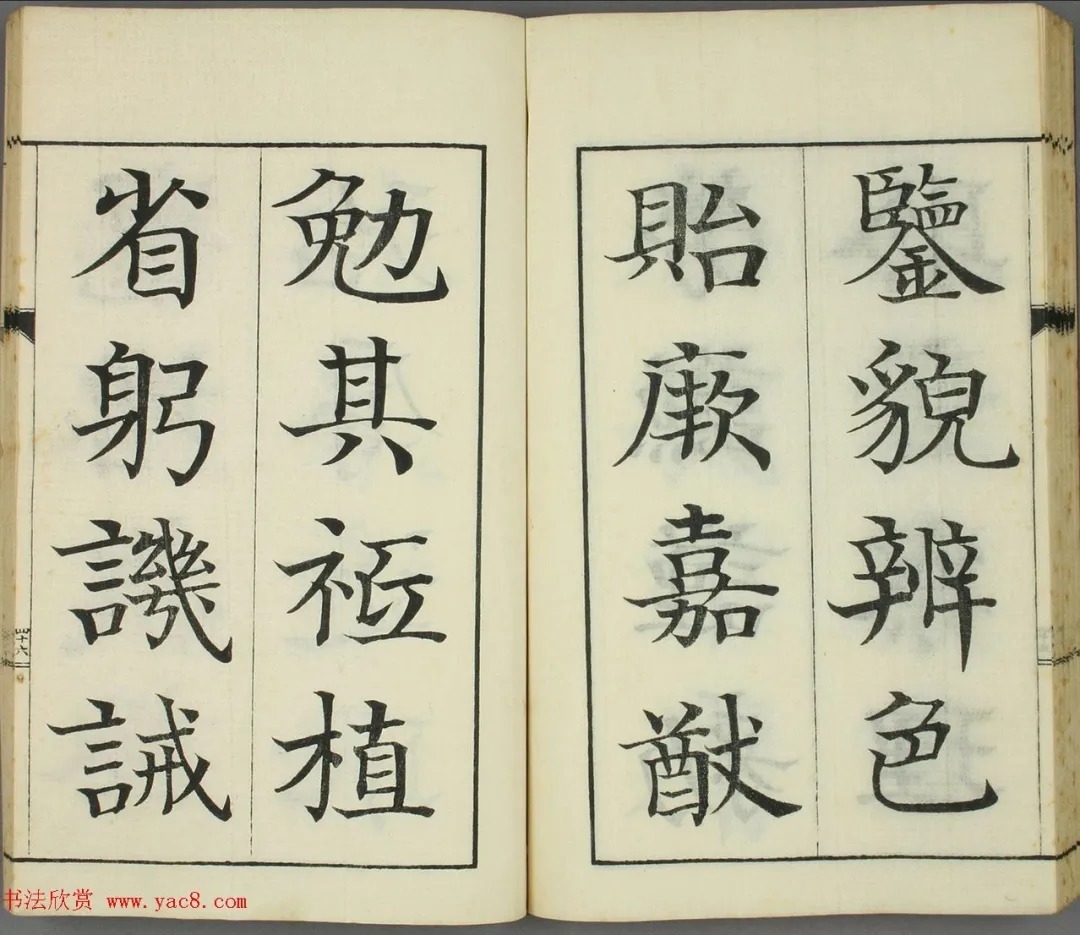 鑒貌辨色
貽厥嘉猷
勉其祗植
省躬譏誡
四十六
书法欣赏 www.yac8.com